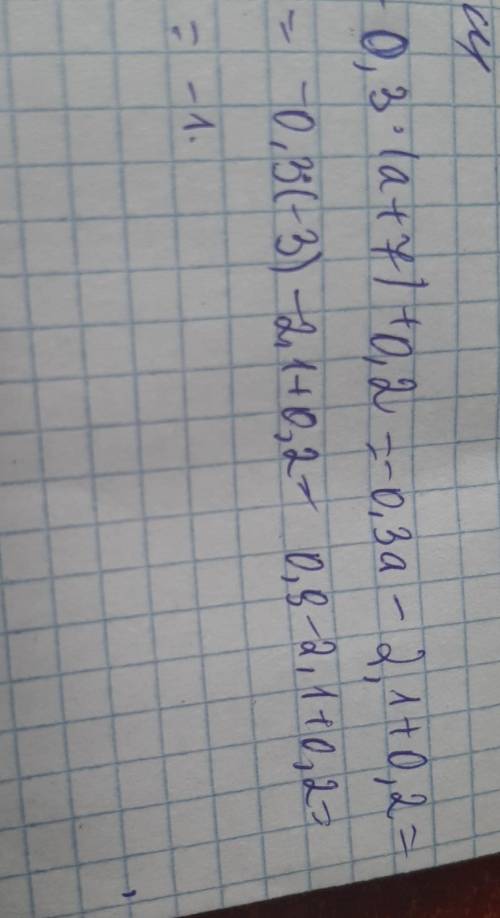 - 0,3·(a+7)+0,2=-0,3a-2,1+0,2=
= -0,3(-3)-2,1+0,2= 0,9-2,1+0,2=
= -1.